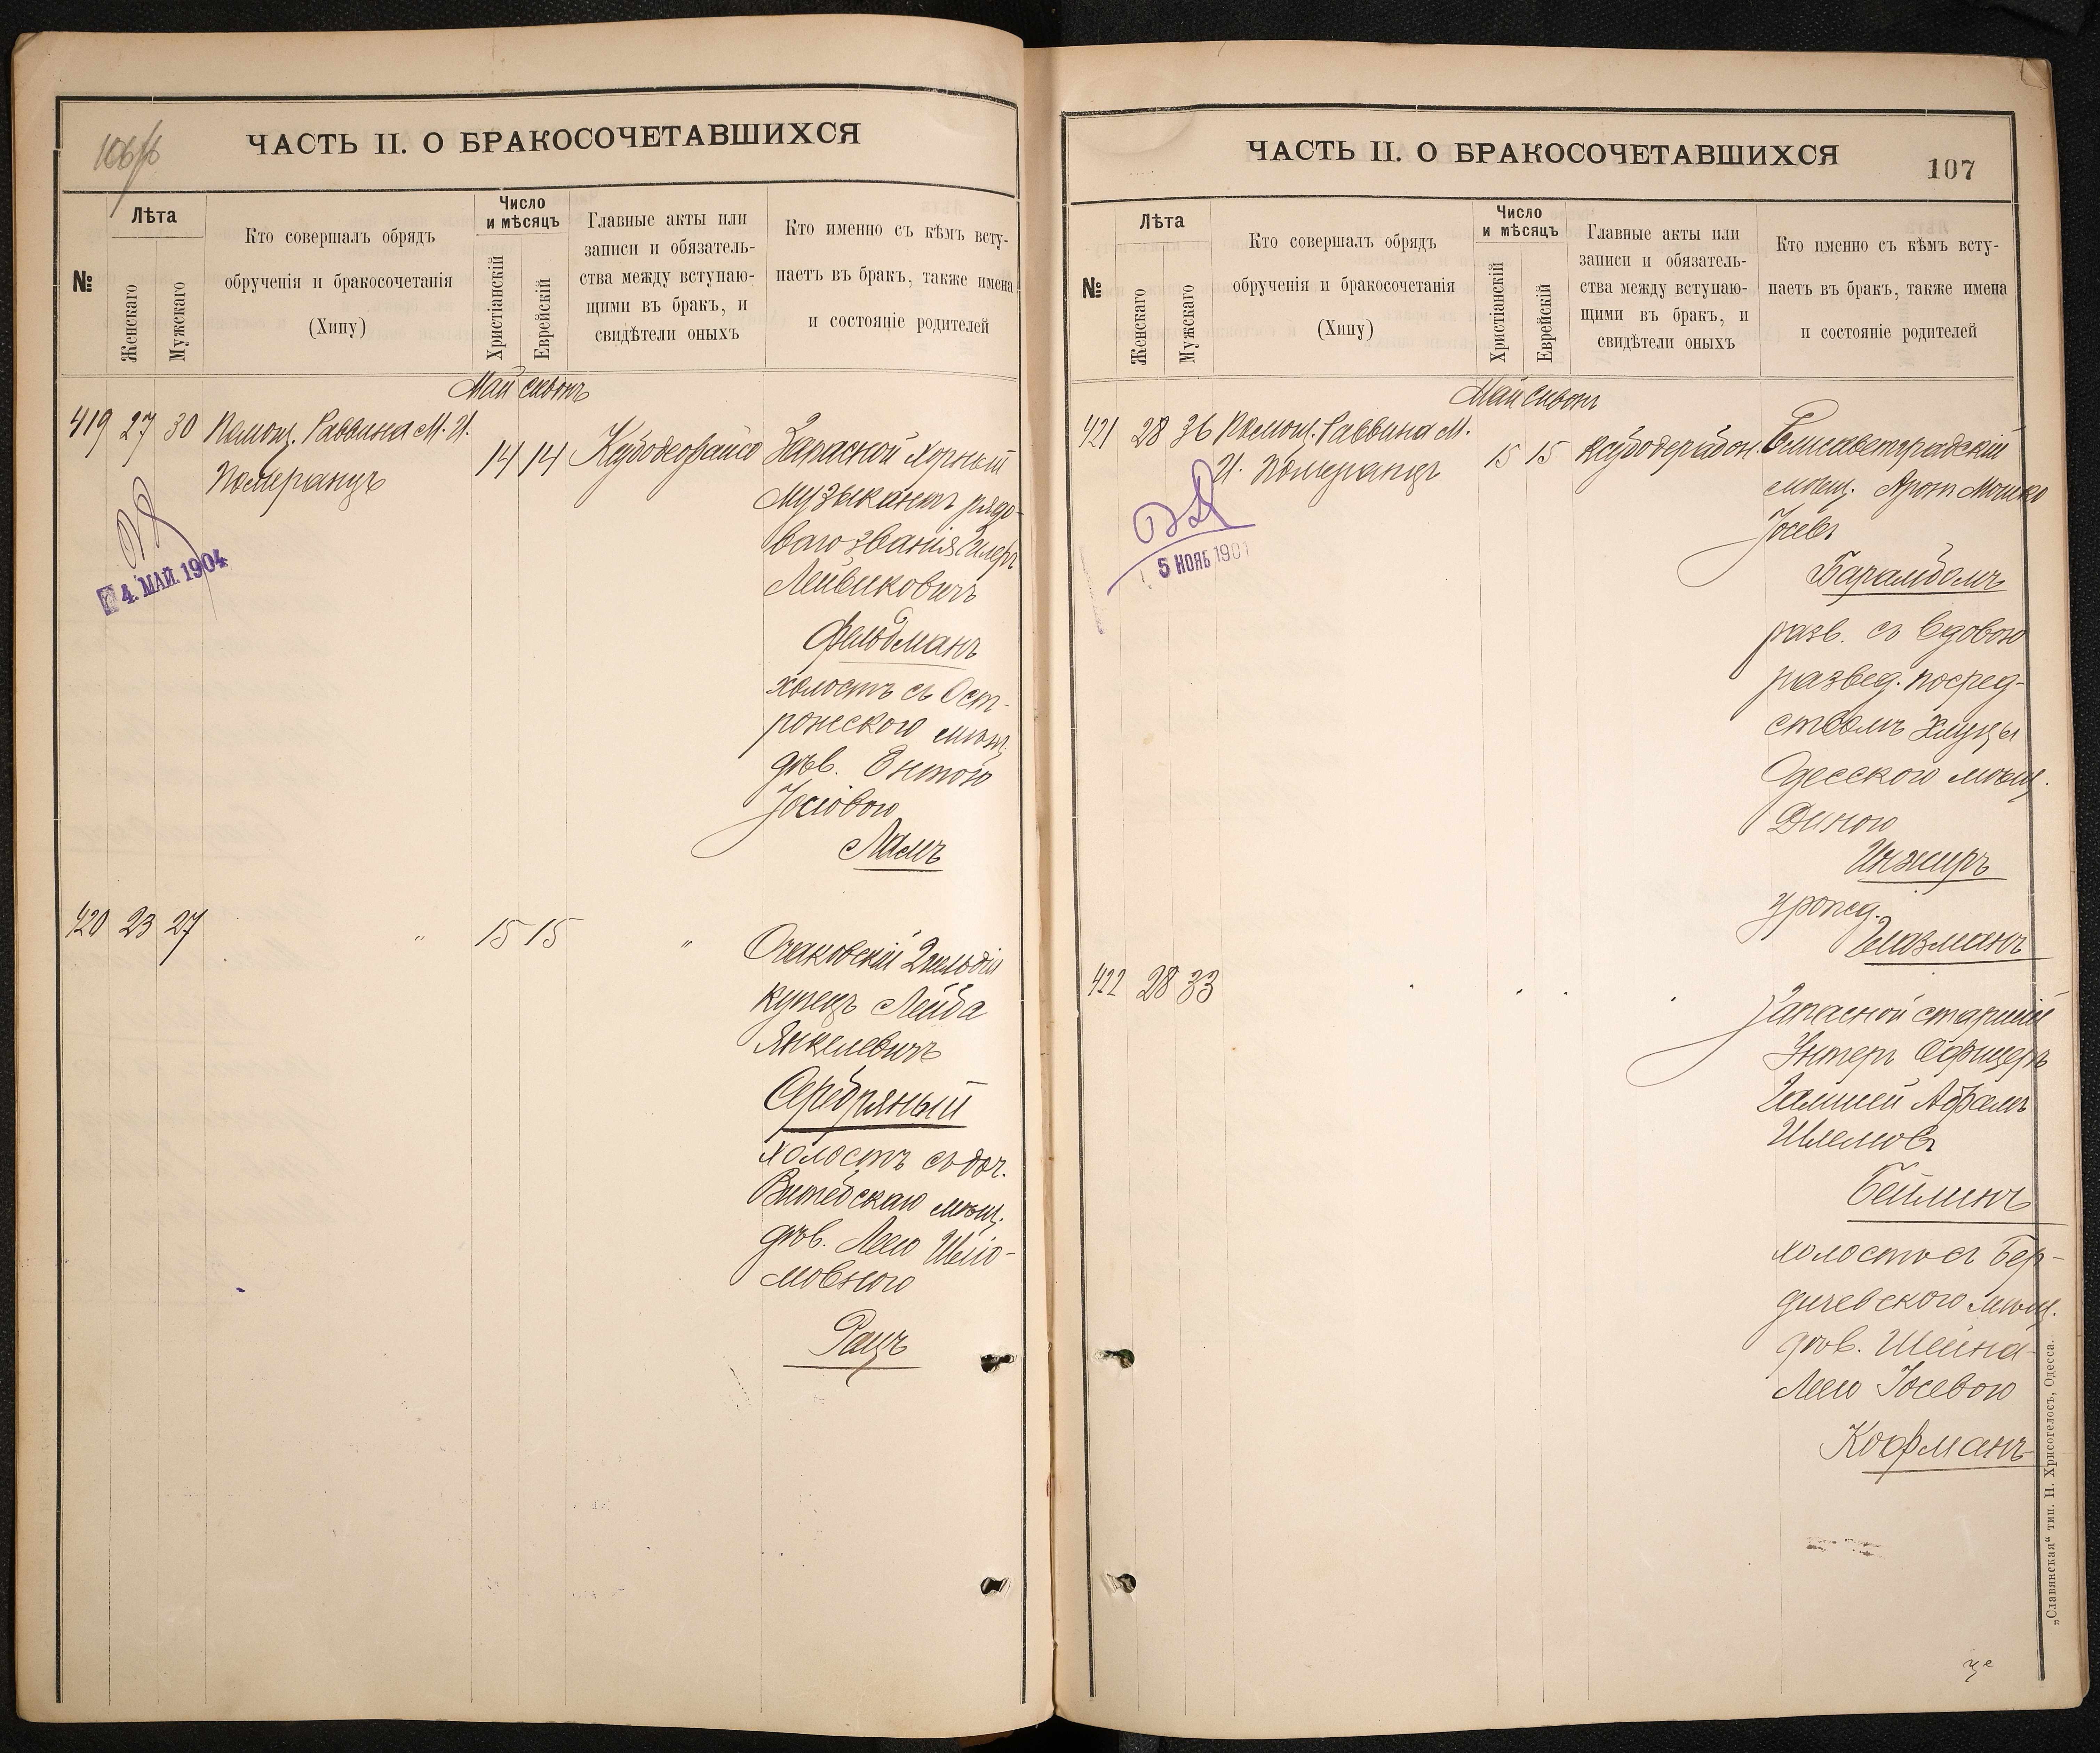 106/об
ЧАСТЬ II. О БРАКОСОЧЕТАВШИХСЯ
№
Лѣта
Женскаго
Мужскаго
Кто совершалъ обрядъ
обрученія и бракосочетанія
(Хипу)
Число
и мѣсяцъ
Христіанскій
Еврейскій
Главные акты или
записи и обязатель-
ства между вступаю-
щими въ бракъ, и
свидѣтели оныхъ
Кто именно съ кѣмъ всту-
паетъ въ бракъ, также имена
и состояніе родителей
Май Сивонъ
419 27 30 Помощ. Раввина М. И.
Померанцъ
14 14
Запасной хорный
музыкантъ рядо-
ваго званія
Лейвиковичъ
Фельдманъ
холостъ съ Ост-
рожского мѣщ.
дѣв. Ентою
Іосіовою
Ламъ
4. МАЙ. 1904
420 23 27 " 15 15 "
Очаковскій 2 гильдіи
купецъ Лейба
Янкелевичъ
Серебряный
холостъ съ доч.
Витебскаго мѣщ.
дѣв. Леею Шліо-
мовною
Рацъ
ЧАСТЬ II. О БРАКОСОЧЕТАВШИХСЯ
107
№
Лѣта
Женскаго
Мужскаго
Кто совершалъ обрядъ
обрученія и бракосочетанія
(Хипу)
Число
и мѣсяцъ
Христіанскій
Еврейскій
Главные акты или
записи и обязатель-
ства между вступаю-
щими въ бракъ, и
свидѣтели оныхъ
Кто именно съ кѣмъ всту-
паетъ въ бракъ, также имена
и состояніе родителей
Май Сивонъ
421 28 36 Помощ. Раввина М.
И. Померанцъ
15 15
Елисаветградскій
мѣщ. Аронъ Мошко
Іосевъ
Барамбомъ
разв. съ вдовою
развед. посред-
ствомъ Хлицы
Одесского мѣщ.
Диною
Инжиръ
урожд.
Глазманъ
5 НОЯБ 1901
422 28 33
Запасной старшій
Унтеръ Офицеръ
Абрамъ
Шлемовъ
Бейлинъ
холостъ съ Бер-
дичевского мѣщ.
дѣв. Шейна-
Леею Іосевою
Кофманъ
„Славянская“ тип. Н. Хрисогелосъ, Одесса.